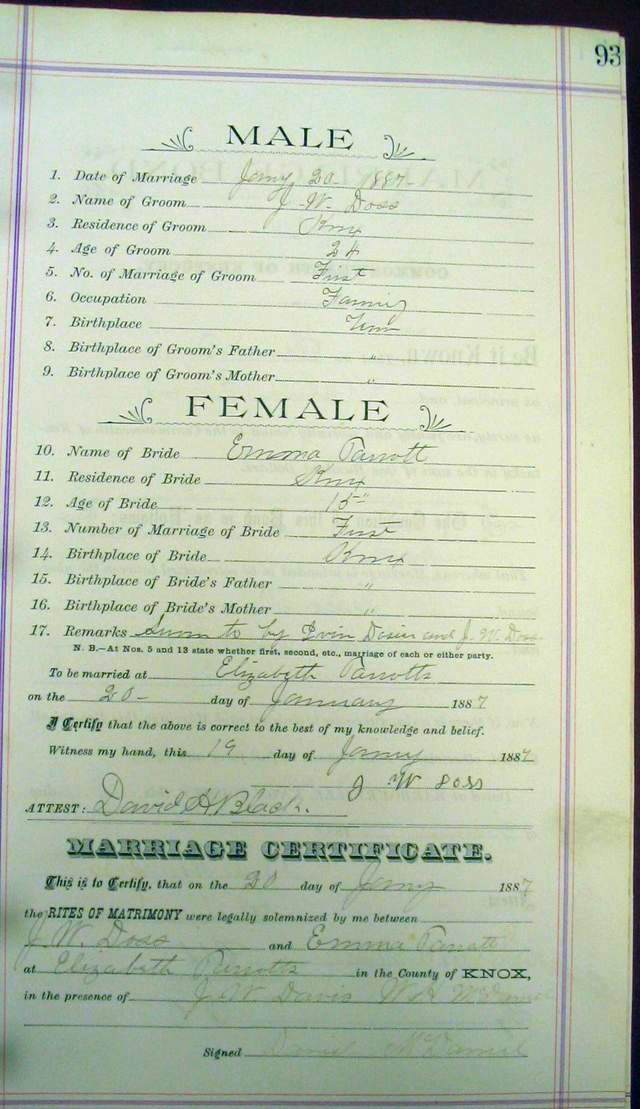 93
MALE
1. Date of Marriage Jany 20 1887
2. Name of Groom J. W. Doss
3. Residence of Groom Knox
4. Age of Groom
5. No. of Marriage of Groom First
6. Occupation Farming
7. Birthplace
8. Birthplace of Groom's Father "
9. Birthplace of Groom's Mother "
FEMALE
10. Name of Bride Emma Parrott
11. Residence of Bride Knox
12. Age of Bride 15
13. Number of Marriage of Bride First
14. Birthplace of Bride Knox
15. Birthplace of Bride's Father "
16. Birthplace of Bride's Mother "
17. Remarks Sworn to by and J. W. Doss
N. B.—At Nos. 5 and 13 state whether first, second, etc., marriage of each or either party.
To be married at Elizabeth Parrotts
on the 20 day of January 1887
I Certify that the above is correct to the best of my knowledge and belief.
Witness my hand, this 19 day of Jany 1887
J W Doss
ATTEST: David A Black.
MARRIAGE CERTIFICATE.
This is to Certify, that on the 20 day of Jany 1887
the RITES OF MATRIMONY were legally solemnized by me between
J. W. Doss and Emma Parrott
at Elizabeth Parrotts in the County of KNOX,
in the presence of J. W. Davis W. H. McDaniel
Signed McDaniel